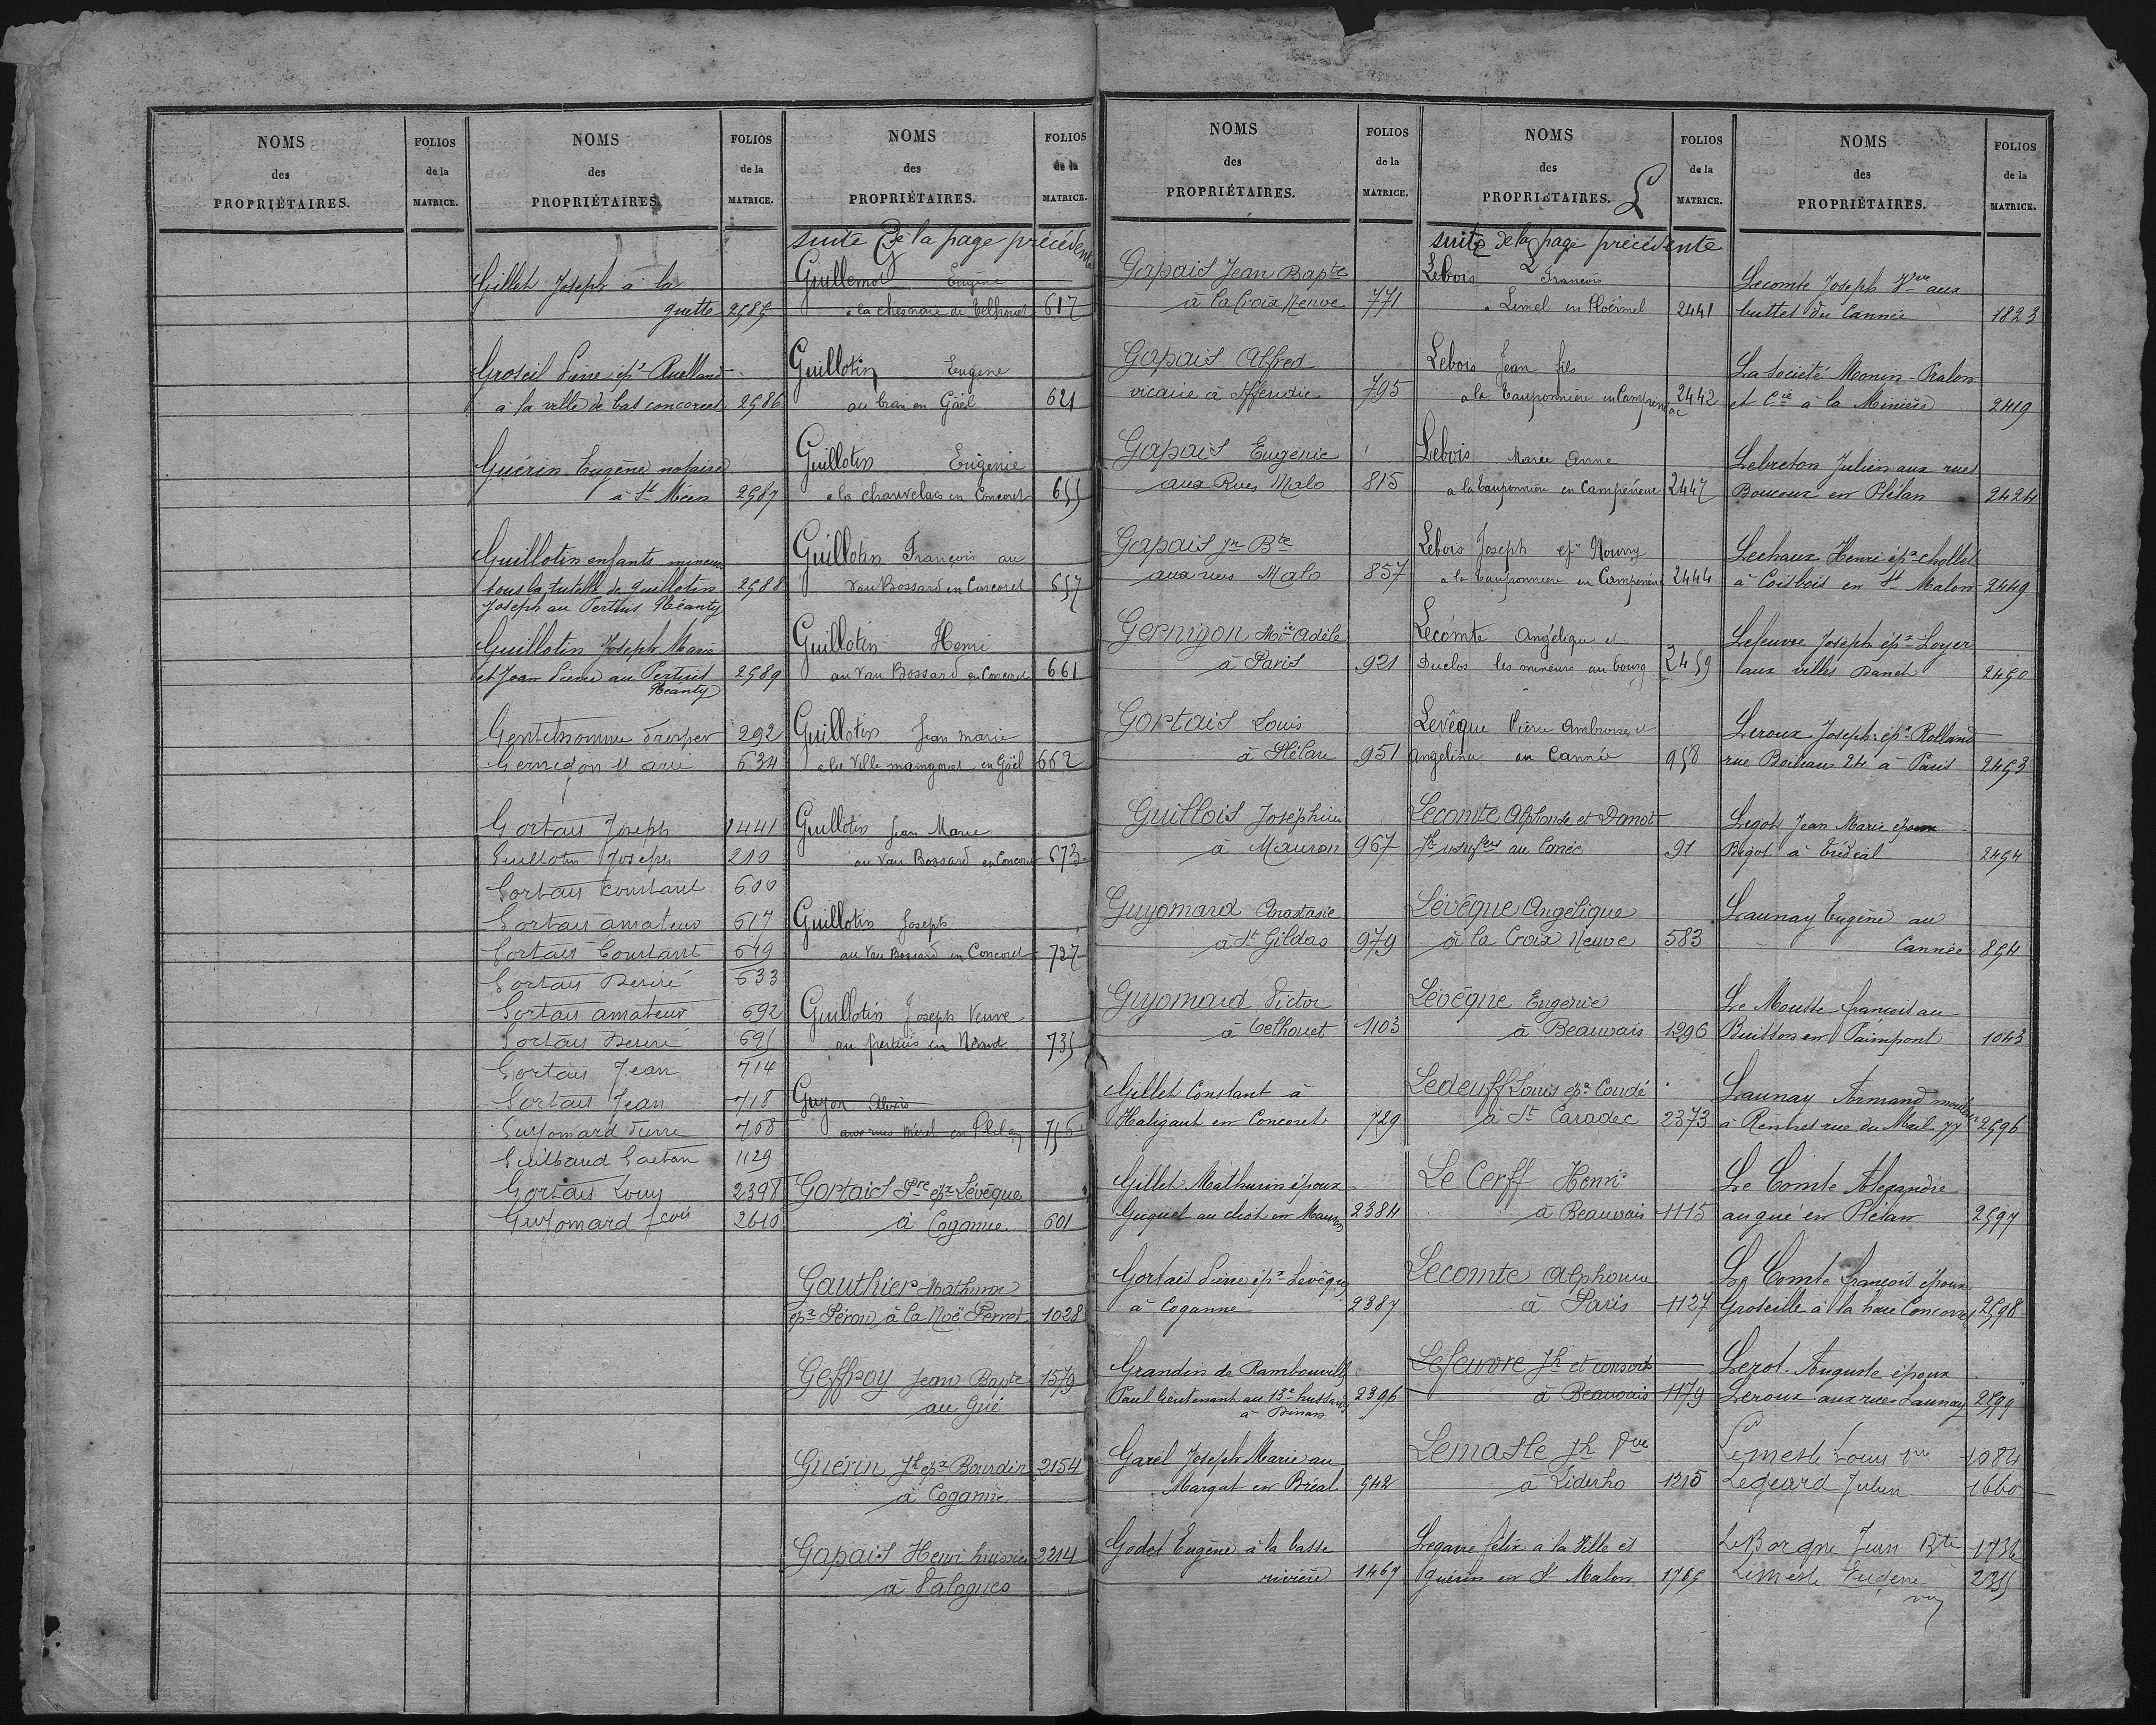 NOMS
des
PROPRIÉTAIRES.
FOLIOS
de la
MATRICE.
NOMS
des
PROPRIÉTAIRES.
FOLIOS
de la
MATRICE.
Gillet Joseph à la
guette 2585
Groseil Pierre épx Ruelland
à la ville de bas concoret 2586
Guérin Eugène notaire
à St Méen 2587
Guillotin enfants mineurs
sous la tutelle de guillotin 2588
Joseph au Pertuis Néanty
Guillotin Joseph Marie
et Jean Pierre au Pertuis 2589
Néanty
Gentilhomme Prosper 292
Gernigon Marie 634
Gortais Joseph 1441
Guillotin Joseph 210
Gortais Constant 600
Gortais amateur 617
Gortais Constant 619
Gortais Desiré 633
Gortais amateur 692
Gortais Desiré 695
Gortais Jean 714
Gortais Jean 718
Guyomard Pierre 768
Guilbaud Gaetan 1129
Gortais Louis 2398
Guyomard fcois 2610
NOMS
des
PROPRIÉTAIRES.
FOLIOS
de la
MATRICE.
suite de la page précédente
G
Guillemot Eugène
à la chesnaie de telhouet 617
Guillotin Eugène
au bran en Gaël 621
Guillotin Eugenie
à la chauvelais en Concoret 655
Guillotin François au
Vau Bossard en Concoret 657
Guillotin Henri
au Vau Bossard en Concoret 661
Guillotin Jean marie
à la Ville mangouet en Gaël 662
Guillotin Jean Marie
au Vau Bossard en Concoret 673
Guillotin Joseph
au Vau Bossard en Concoret 727
Guillotin Joseph Veuve
au pertuis en Néant 735
Guyon Alexis
aux rues Mérel en Plélan 756
Gortais Pre épx Levêque
à Coganne 601
Gauthier Mathurin
épx Péron à la Noë Perret 1028
Geffroy Jean Bapte 1579
au Gué
Guérin Jh épx Bourdin 2154
à Coganne
Gapais Henri huissier 2214
à Valognes
NOMS
des
PROPRIÉTAIRES.
FOLIOS
de la
MATRICE.
Gapais Jean Bapte
à la Croix Neuve 771
Gapais Alfred
vicaire à Iffendic 795
Gapais Eugénie
aux Rues Malo 815
Gapais Jn Bte
aux rues Malo 857
Gernigon Mie Adèle
à Paris 921
Gortais Louis
à Plélan 951
Guillois Joséphine
à Mauron 967
Guyomard Anastasie
à St Gildas 979
Guyomard Victor
à telhouet 1103
Gillet Constant à
Haligaut en Concoret 729
Gillet Mathurin époux
Guguel au clos en Mauron 2384
Gortais Pierre épx Levêque
à Coganne 2387
Grandin de Rambouville
Paul lieutenant au 13e hussards 2396
à Dinan
Garel Joseph Marie au
Margat en Bréal 542
Godet Eugène à la basse
rivière 1467
NOMS
des
PROPRIÉTAIRES.
FOLIOS
de la
MATRICE.
L
suite de la page précédente
L
Lebois François
à Limel en Ploërmel 2441
Lebois Jean fils
à la Tauponnière en Campénéac 2442
Lebois Marie Anne
à la tauponnière en Campénéac 2447
Lebois Joseph épx Nourry
à la tauponnière en Campénéac 2444
Lecomte Angélique et
Duclos les mineurs au bourg 2459
Levêque Pierre Ambroise et
Angelina au Cannée 958
Lecomte Alphonse et Danot
Jh usufrs au Canée 91
Lévêque Angélique
à la Croix Neuve 583
Lévêque Eugenie
à Beauvais 1296
Ledeuff Louis épx Coudé
à St Caradec 2373
Le Cerff Henri
à Beauvais 1115
Lecomte Alphonse
à Paris 1127
Lefeuvre Jh et consorts
à Beauvais 1179
Lemasle Jh Vve
à Liderho 1215
Legarre félix à la Ville et
guérin en St Malon 1765
NOMS
des
PROPRIÉTAIRES.
FOLIOS
de la
MATRICE.
Lecomte Joseph Vve aux
buttes du Cannée 1823
La Société Monin-Pralon
et Cie à la Minière 2419
Lebreton Julien aux rues
Boucoux en Plélan 2424
Lechaux Henri épx chollet
à Coisbois en St Malon 2449
Lefeuvre Joseph épx Loyer
aux villes Danet 2450
Leroux Joseph épx Rolland
rue Boileau 24 à Paris 2453
Legot Jean Marie époux
Bigot à Tréal 2454
Launay Eugène au
Cannée 854
Le Moutte françois au
Buisson en Paimpont 1043
Launay Armand
à Rennes rue du Mail 77 2596
Le Comte Alexandre
au gué en Plélan 2597
Le Comte françois époux
Groseille à la haie Concoret 2598
Lerot Auguste époux
Leroux aux rues Launay 2599
Lemesle Louis Vve 1084
Legeard Julien 1660
Le Borgne Jean Bte 1736
Lemesle Eugène 2355